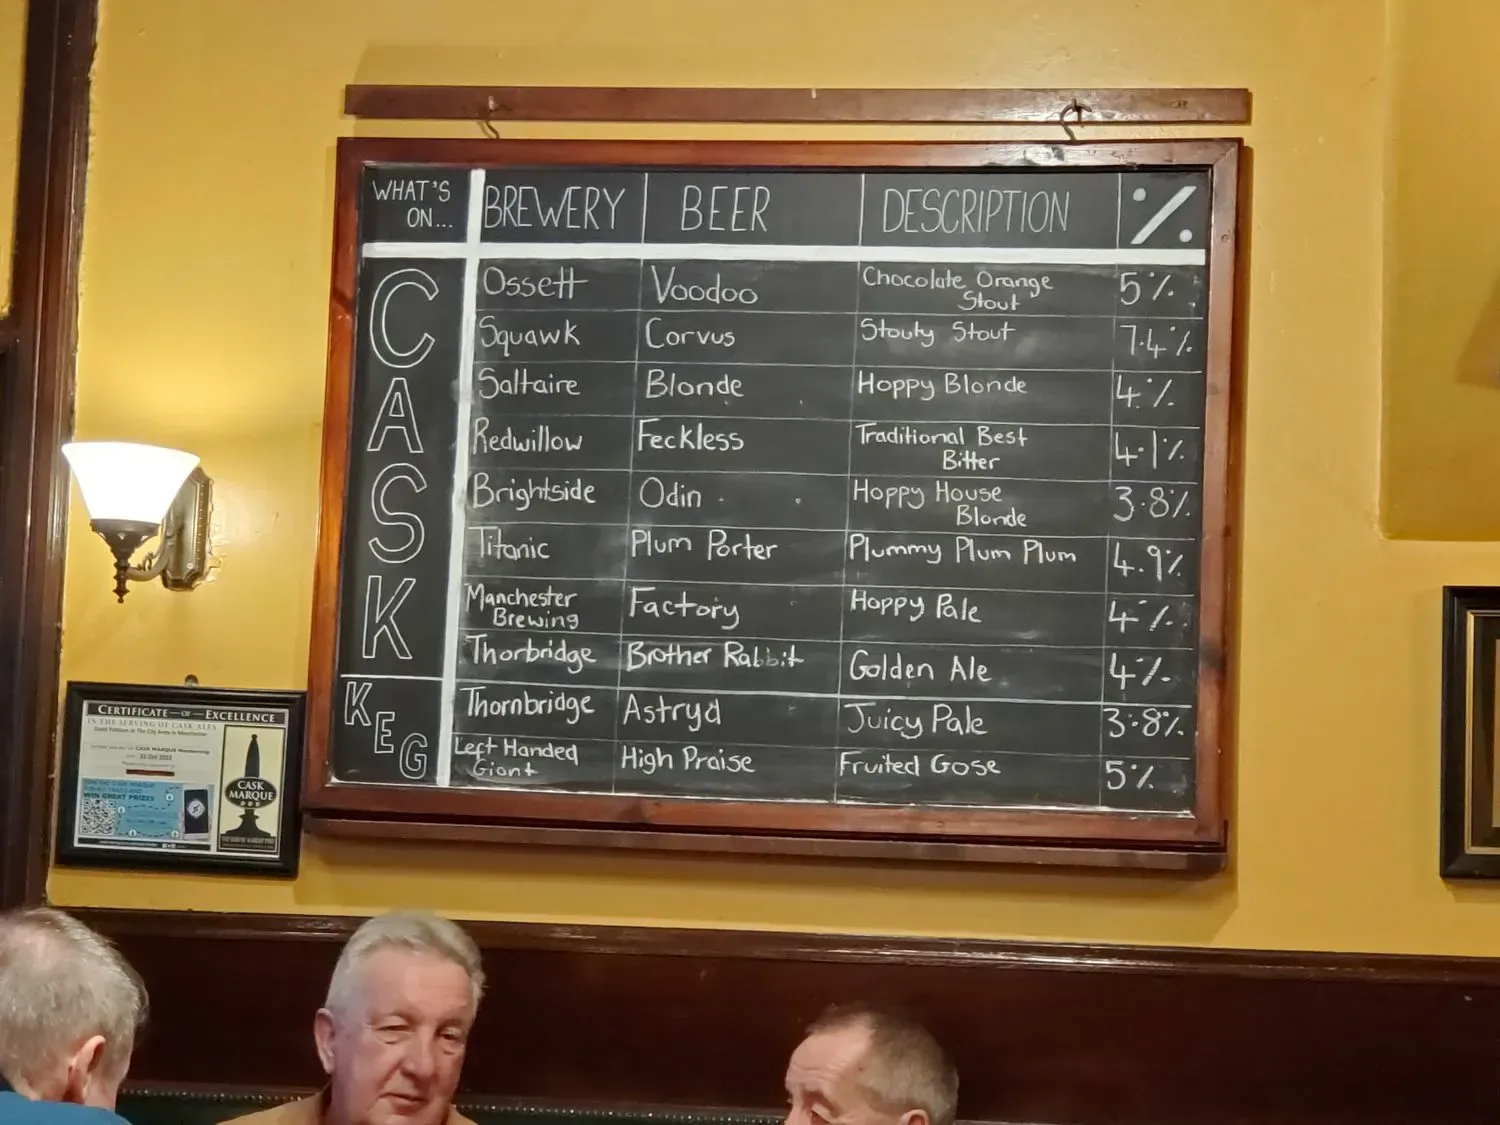 WHAT'S ON... BREWERY BEER DESCRIPTION %
CASK
Ossett Voodoo Chocolate Orange Stout 5%
Squawk Corvus Stouty Stout 7.4%
Saltaire Blonde Hoppy Blonde 4%
Redwillow Feckless Traditional Best Bitter 4.1%
Brightside Odin Hoppy House Blonde 3.8%
Titanic Plum Porter Plummy Plum Plum 4.9%
Manchester Brewing Factory Hoppy Pale 4%
Thorbridge Brother Rabbit Golden Ale 4%
KEG
Thornbridge Astryd Juicy Pale 3.8%
Left Handed Giant High Praise Fruited Gose 5%
CERTIFICATE OF EXCELLENCE
IN THE SERVING OF CASK ALES
CASK MARQUE
WIN GREAT PRIZES